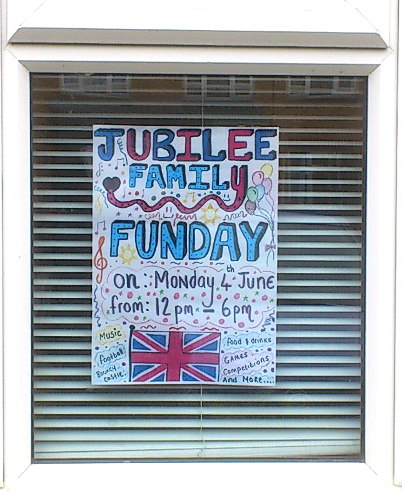 JUBILEE
FAMILY
FUNDAY
on: Monday 4th June
from: 12pm – 6pm
Music
Football
Bouncy
Castle.
Food & drinks
Games
Competitions
And More....